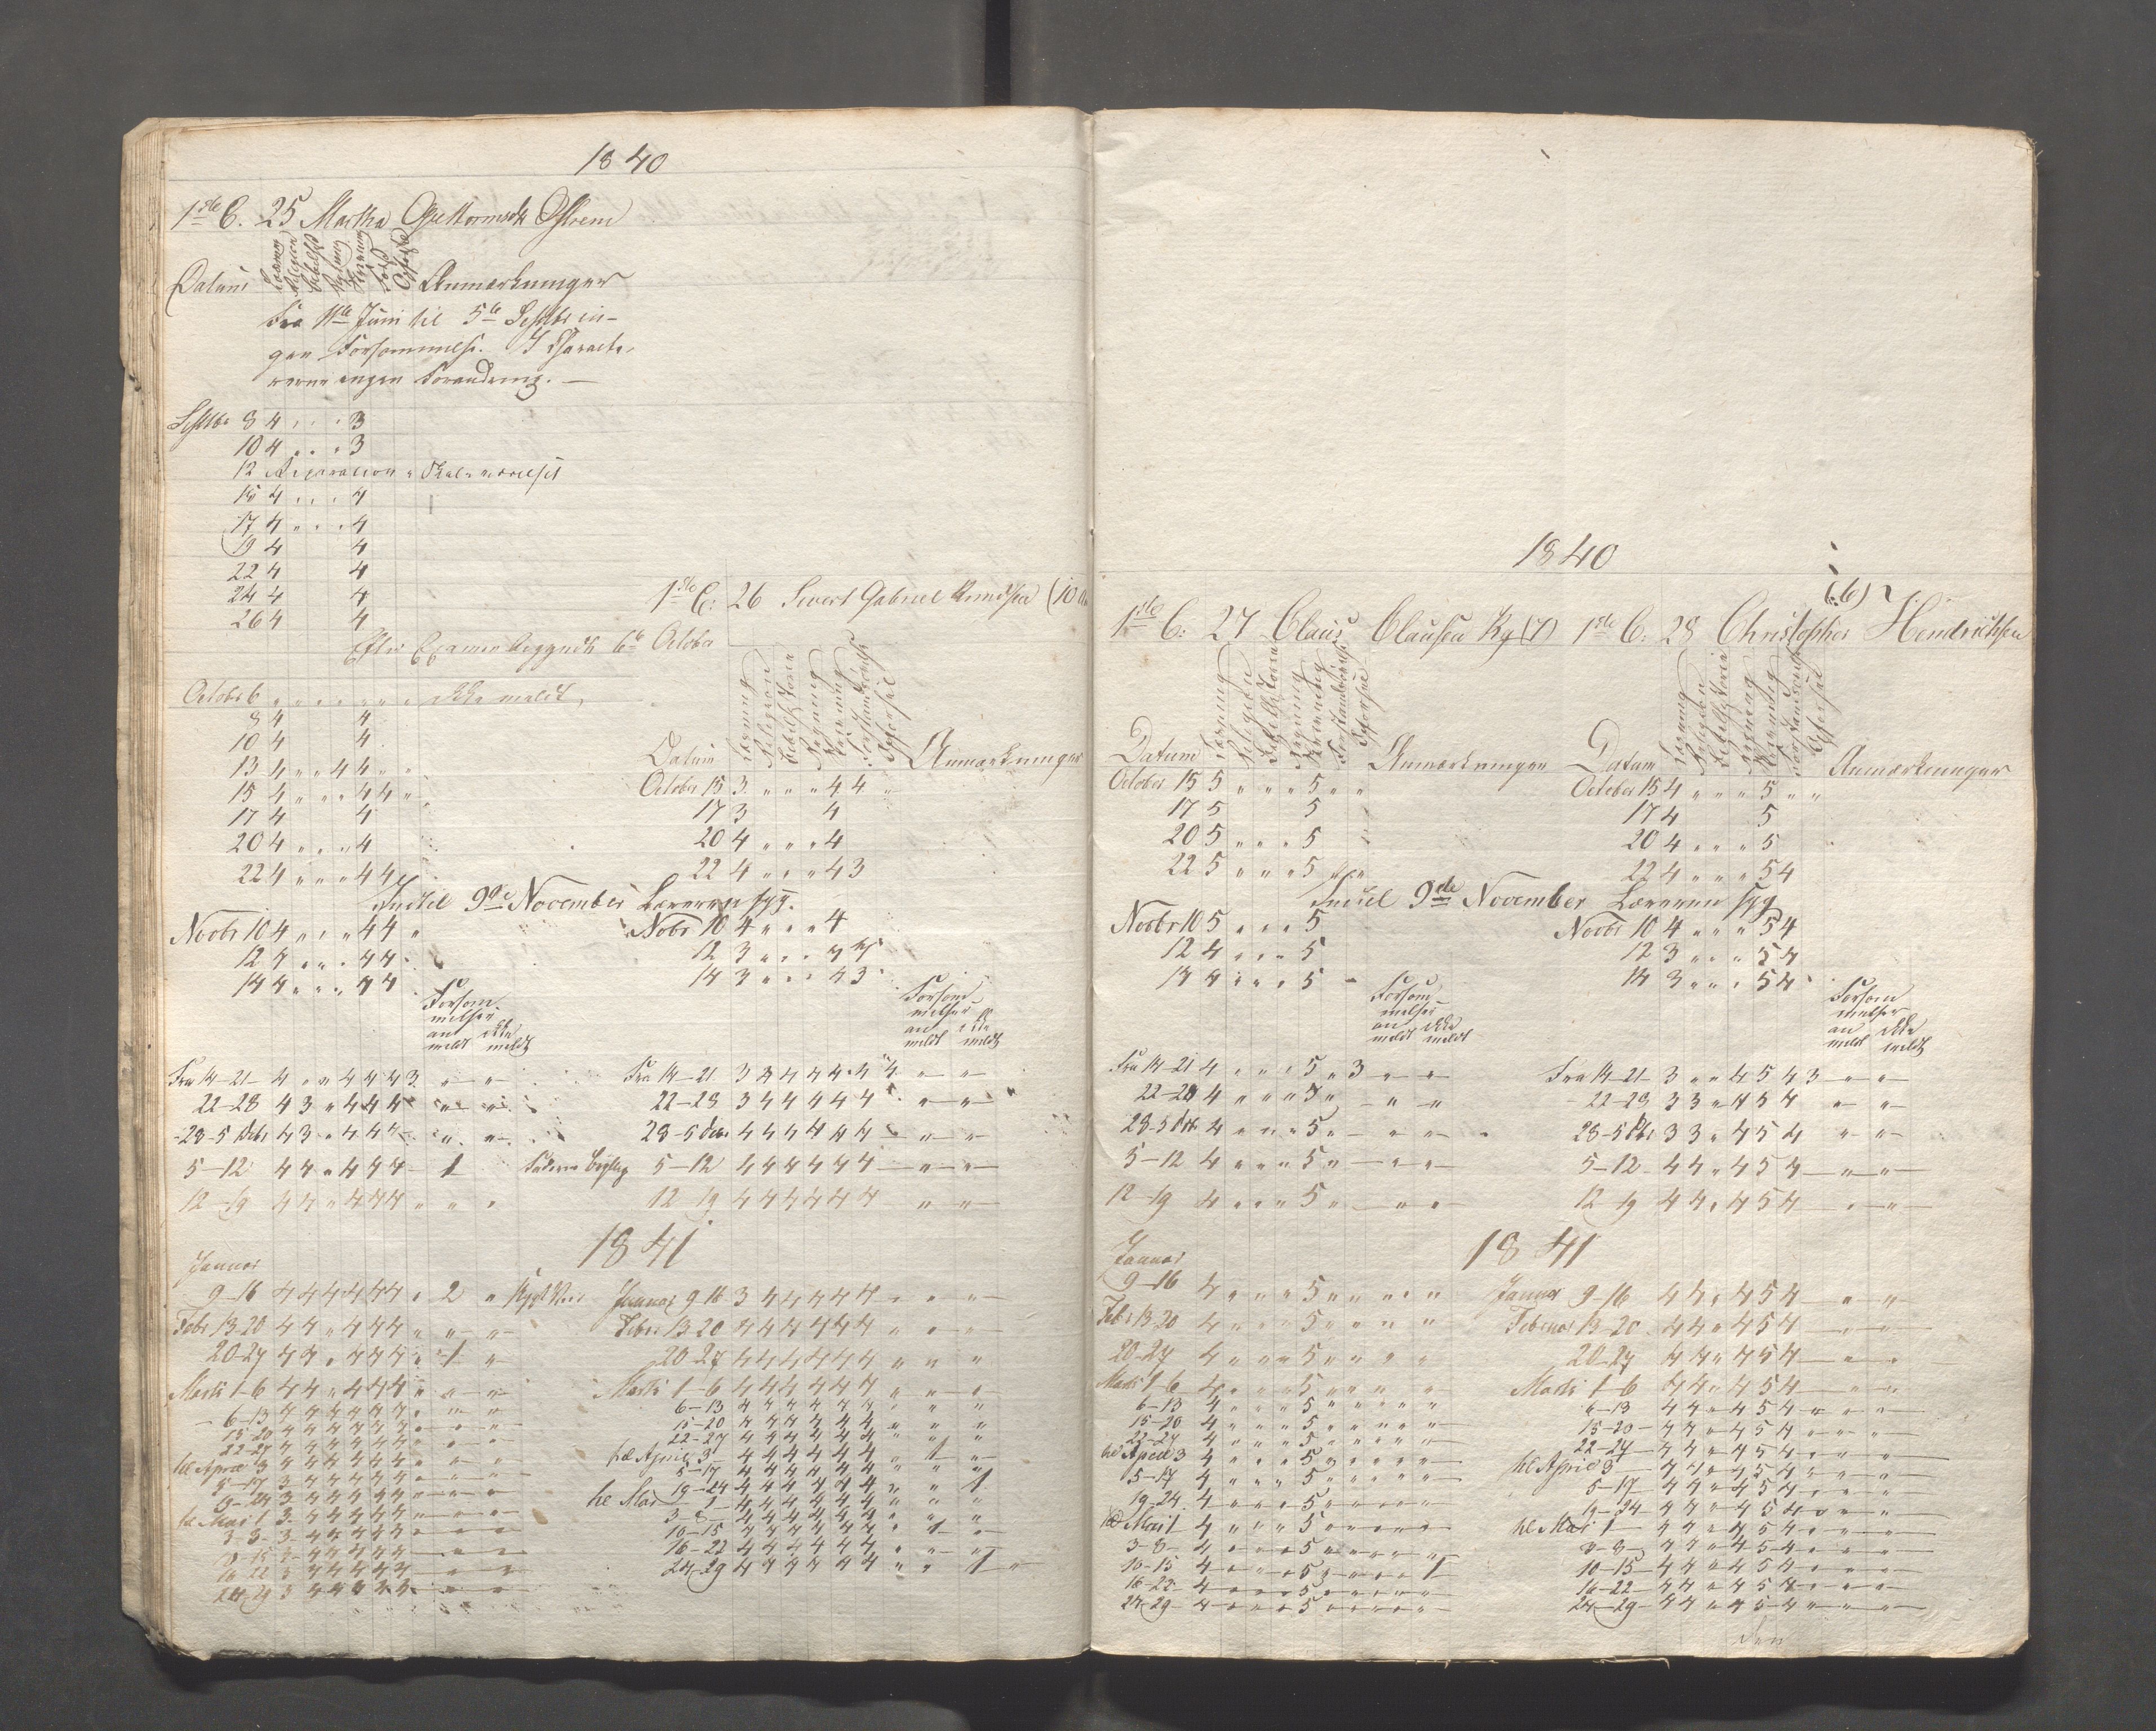 1840
1ste C. 25 Martha Guttormsdtr Østrem
Datum Læsning Religion Bibelhist Regning Skrivning Forst Opførsel Anmærkninger
Fra 11te Juni til 5te Septbr in-
gen Forsømmelse. I Characte-
rerne ingen Forandring. —
Septbr 8 4 " " " 3
10 4 " " " 3
12 Reparation " Skoleværelset
15 4 " " " 4
17 4 " " " 4
19 4 4
22 4 4
24 4 4
26 4 4
Efter Examen begyndte 6te October
October 6 " " " " " " " ikke meldt
8 4 4
10 4 4
13 4 " " 4 4 " "
15 4 " " " 4 4 "
17 4 4
20 4 " " " 4
22 4 " " " 4 4
Indtil 9de November Læreren syg.
Novbr 10 4 " " " 4 4 "
12 4 " " " 4 4
14 4 " " " 4 4
Forsøm
melser
an ikke
meldt meldt
Fra 14-21 4 " " 4 4 4 3 " "
22-28 4 3 " 4 4 4 " "
28-5 Debr 4 3 " 4 4 4 " "
5-12 4 4 " 4 4 4 — 1
12-19 4 4 " 4 4 4 " " "
1ste C: 26 Sivert Gabriel Knudsen (10
Datum Læsning Religion Bibelhistorie Regning Skrivning Forstandsøvelse Opførsel Anmærkninger
October 15 3 " " " 4 4 "
17 3 4
20 4 " " " 4
22 4 " " " 4 3
Novbr 10 4 " " " 4
12 3 " " " 4 4
14 3 " " " 4 3
Forsøm
melser
an ikke
meldt meldt
Fra 14-21 3 3 4 4 4 4 4 " "
22-28 3 4 4 4 4 4 " "
28-5 Debr 4 4 4 4 4 4 " "
5-12 4 4 4 4 4 4 " "
12-19 4 4 4 4 4 4 " "
1841
Januar
9-16 4 4 4 4 4 4 " 2 "
Febr 13-20 4 4 " 4 4 4 " " "
20-27 4 4 " 4 4 4 " 1 "
Marts 1-6 4 4 " 4 4 4 " " "
6-13 4 4 4 4 4 4 " " "
15-20 4 4 4 4 4 4 " " "
22-27 4 4 4 4 4 4 " " "
til April 3 4 4 4 4 4 4 " " "
5-17 3 4 4 4 4 4 " " "
19-24 3 4 4 4 4 4 " " "
til Mai 1 3 4 4 4 4 4 " " "
3-8 3 4 4 4 4 4 " " "
10-15 3 4 4 4 4 4 " "
16-22 3 4 4 4 4 4 " "
24-29 3 4 4 4 4 4 " "
Januar 9-16 3 4 4 4 4 4 " " "
Febr. 13-20 4 4 4 4 4 4 " " "
20-27 4 4 4 4 4 4 " " "
Marts 1-6 4 4 4 4 4 4 " " "
6-13 4 4 4 4 4 4 " " "
15-20 4 4 4 4 4 4 " " "
22-27 4 4 4 4 4 4 " " "
til April 3 4 4 4 4 4 4 " 1 "
5-17 4 4 4 4 4 4 " " "
19-24 4 4 4 4 4 4 " " 1
til Mai 1 4 4 4 4 4 4 " " "
3-8 4 4 4 4 4 4 " " "
10-15 4 4 4 4 4 4 " 1 "
16-22 4 4 4 4 4 4 " " "
24-29 4 4 4 4 4 4 " " 1
1840
1ste C: 27 Claus Clausen (7)
Datum Læsning Religion Bibelhistorie Regning Skrivning Forstandsøvelse Opførsel Anmærkninger
October 15 5 " " " 5 " "
17 5 5
20 5 " " " 5
22 5 " " " 5 " "
Indtil 9de November Læreren syg
Novbr 10 5 " " " 5
12 4 " " " 5
14 4 " " " 5
Forsøm
melser
an ikke
meldt meldt
Fra 14-21 4 " " " 5 " 3 " "
22-28 4 " " " 5 " " "
28-5 Dbr 4 " " " 5 " " "
5-12 4 " " " 5 " " "
12-19 4 " " " 5 " " "
(6)
1ste C: 28 Christopher Hendrichsen
Datum Læsning Religion Bibelhistorie Regning Skrivning Forstandsøvelse Opførsel Anmærkninger
October 15 4 " " " 5 " "
17 4 5
20 4 " " " 5
22 4 " " " 5 4
Novbr 10 4 " " " 5 4
12 3 " " " 5 4
14 3 " " " 5 4
Forsøm
melser
an ikke
meldt meldt
Fra 14-21 3 " " 4 5 4 3 " "
22-28 3 3 " 4 5 4 " "
28-5 Dbr 3 3 " 4 5 4 " "
5-12 4 4 " 4 5 4 " "
12-19 4 4 " 4 5 4 " "
1841
Januar
9-16 4 " " " 5 " " " "
Febr 13-20 4 " " " 5 " " " "
20-27 4 " " " 5 " " " "
Marts 1-6 4 " " " 5 " " " "
6-13 4 " " " 5 " " " "
15-20 4 " " " 5 " " " "
22-27 4 " " " 5 " " " "
til April 3 4 " " " 5 " " " "
5-17 4 " " " 5 " " " "
19-24 4 " " " 5 " " " "
til Mai 1 4 " " " 5 " " " "
3-8 4 " " " 5 " " " "
10-15 4 " " " 5 " " " 1
16-22 4 " " " 5 " " " "
24-29 4 " " " 5 " " " "
Januar 9-16 4 4 " 4 5 4 " "
Februar 13-20 4 4 " 4 5 4 " "
20-27 4 4 " 4 5 4 " "
Marts 1-6 4 4 " 4 5 4 " "
6-13 4 4 " 4 5 4 " " "
15-20 4 4 " 4 5 4 " " "
22-27 4 4 " 4 5 4 " " "
til April 3 4 4 " 4 5 4 " " "
5-17 4 4 " 4 5 4 " " "
19-24 4 4 " 4 5 4 " " "
til Mai 1 4 4 " 4 5 4 " " "
3-8 4 4 " 4 5 4 " " "
10-15 4 4 " 4 5 4 " " "
16-22 4 4 " 4 5 4 " " "
24-29 4 4 " 4 5 4 " " "